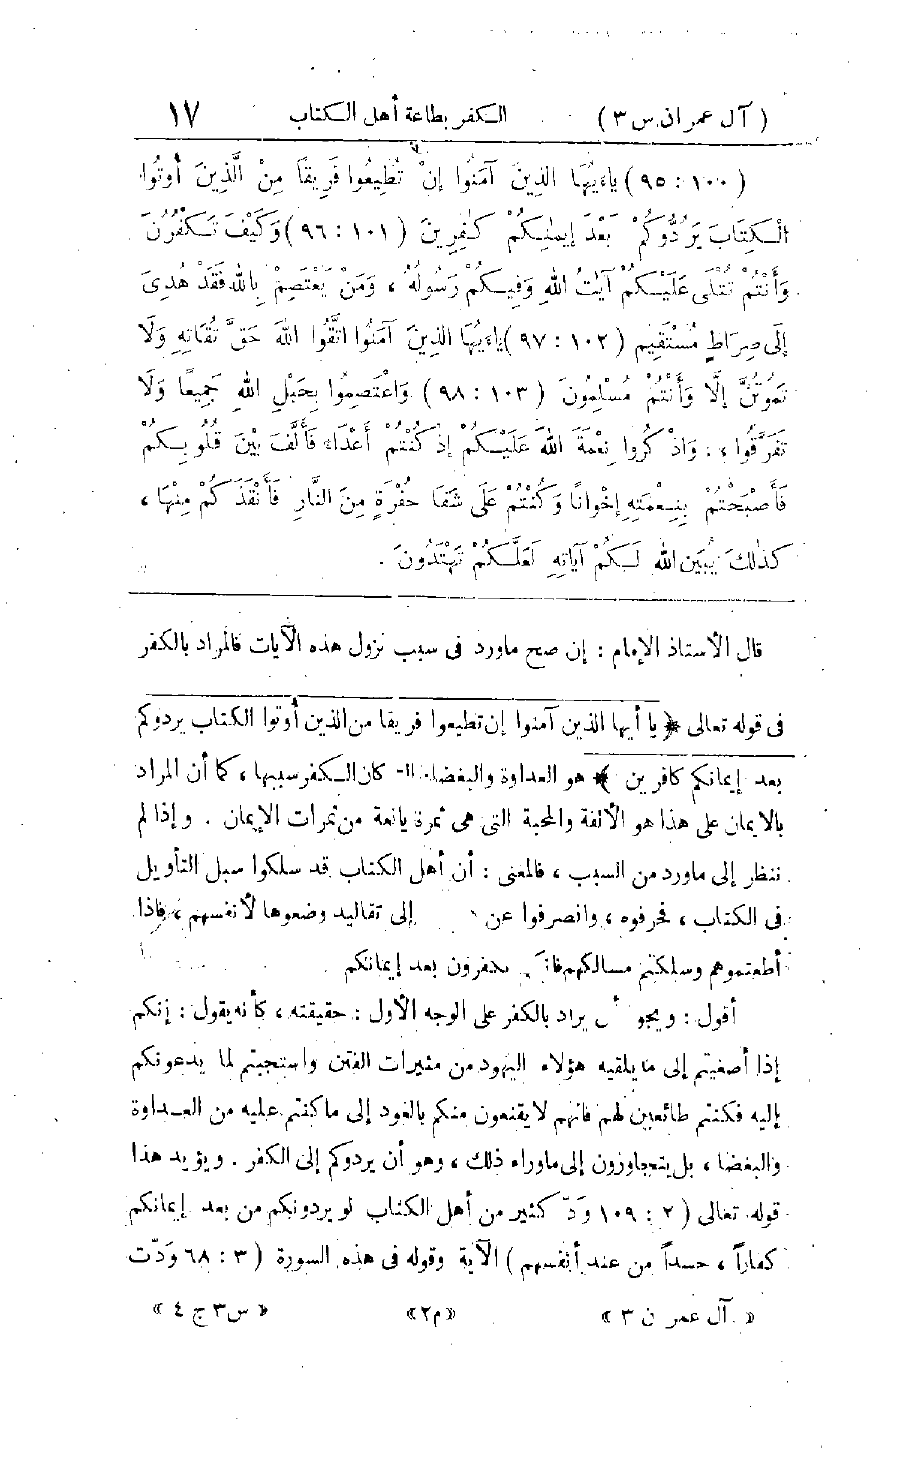 ( آل عمران. س ٣ ) الكفر بطاعة أهل الكتاب ١٧
( ١٠٠ : ٩٥ ) يٰاءَيُّهَا الَّذِينَ آمَنُوا إِنْ تُطِيعُوا فَرِيقًا مِنْ الَّذِينَ أُوتُوا
الْكِتَابَ يَرُدُّوكُمْ بَعْدَ إِيمَٰنِكُمْ كَٰفِرِينَ ( ١٠١ : ٩٦ ) وَكَيْفَ تَكْفُرُونَ
وَأَنْتُمْ تُتْلَى عَلَيْكُمْ آيَاتُ اللهِ وَفِيكُمْ رَسُولُهُ ، وَمَنْ يَعْتَصِمْ بِاللهِ فَقَدْ هُدِىَ
إِلَى صِرَاطٍ مُسْتَقِيمٍ ( ١٠٢ : ٩٧ ) يٰاءَيُّهَا الَّذِينَ آمَنُوا اتَّقُوا اللهَ حَقَّ تُقَاتِهِ وَلَا
تَمُوتُنَّ إِلَّا وَأَنْتُمْ مُسْلِمُونَ ( ١٠٣ : ٩٨ ) وَاعْتَصِمُوا بِحَبْلِ اللهِ جَمِيعًا وَلَا
تَفَرَّقُوا ، وَاذْكُرُوا نِعْمَةَ اللهِ عَلَيْكُمْ إِذْ كُنْتُمْ أَعْدَاءً فَأَلَّفَ بَيْنَ قُلُوبِكُمْ
فَأَصْبَحْتُمْ بِنِعْمَتِهِ إِخْوَانًا وَكُنْتُمْ عَلَى شَفَا حُفْرَةٍ مِنَ النَّارِ فَأَنْقَذَكُمْ مِنْهَا ،
كَذٰلِكَ يُبَيِّنُ اللهُ لَكُمْ آيَاتِهِ لَعَلَّكُمْ تَهْتَدُونَ .
قال الأستاذ الإمام : إن صح ماورد فى سبب نزول هذه الآيات فالمراد بالكفر
فى قوله تعالى ﴿ يا أيها الذين آمنوا إن تطيعوا فريقا من الذين أوتوا الكتاب يردوكم
بعد إيمانكم كافرين ﴾ هو العداوة والبغضاء التى كان الكفر سببها ، كما أن المراد
بالايمان على هذا هو الألفة والمحبة التى هى ثمرة يانعة من ثمرات الإيمان . وإذا لم
ننظر إلى ماورد من السبب ، فالمعنى : أن أهل الكتاب قد سلكوا سبل التأويل
فى الكتاب ، فحرفوه ، وانصرفوا عن إلى تقاليد وضعوها لأنفسهم ، فإذا
أطعتموهم وسلكتم مسالكهم فانكم تكفرون بعد إيمانكم
أقول : ويجوز أن يراد بالكفر على الوجه الأول : حقيقته ، كأنه يقول : إنكم
إذا أصغيتم إلى ما يلقيه هؤلاء اليهود من مثيرات الفتن واستجبتم لما يدعونكم
إليه فكنتم طائعين لهم فانهم لا يقنعون منكم بالعود إلى ما كنتم عليه من العداوة
والبغضاء ، بل يتجاوزون إلى ماوراء ذلك ، وهو أن يردوكم إلى الكفر . ويؤيد هذا
قوله تعالى ( ٢ : ١٠٩ وَدّ كثير من أهل الكتاب لو يردونكم من بعد إيمانكم
كفاراً ، حسداً من عند أنفسهم ) الآية وقوله فى هذه السورة ( ٣ : ٦٨ وَدّت
« آل عمران ٣ » «م٢» « س ٣ ج ٤ »